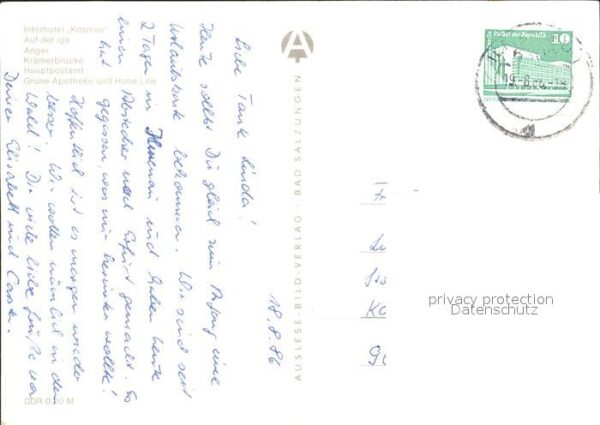 Interhotel „Kosmos"
Auf der iga
Anger
Krämerbrücke
Hauptpostamt
Grüne Apotheke und Hohe Lilie
18.8.86
Liebe Tante Linda!
Heute sollst Du gleich zum Anfang eine
Urlaubskarte bekommen. Wir sind seit
2 Tagen in Ilmenau und haben heute
einen Abstecher nach Erfurt gemacht. Es
hat gegossen was nur herunter wollte!
Hoffentlich ist es morgen wieder
besser. Wir wollen nämlich in den
Wald! Dir viele liebe Grüße von
Deiner Elisabeth und
DDR 0,20 M
AUSLESE-BILD-VERLAG BAD SALZUNGEN
A
Palast der Republik
10
privacy protection
Datenschutz